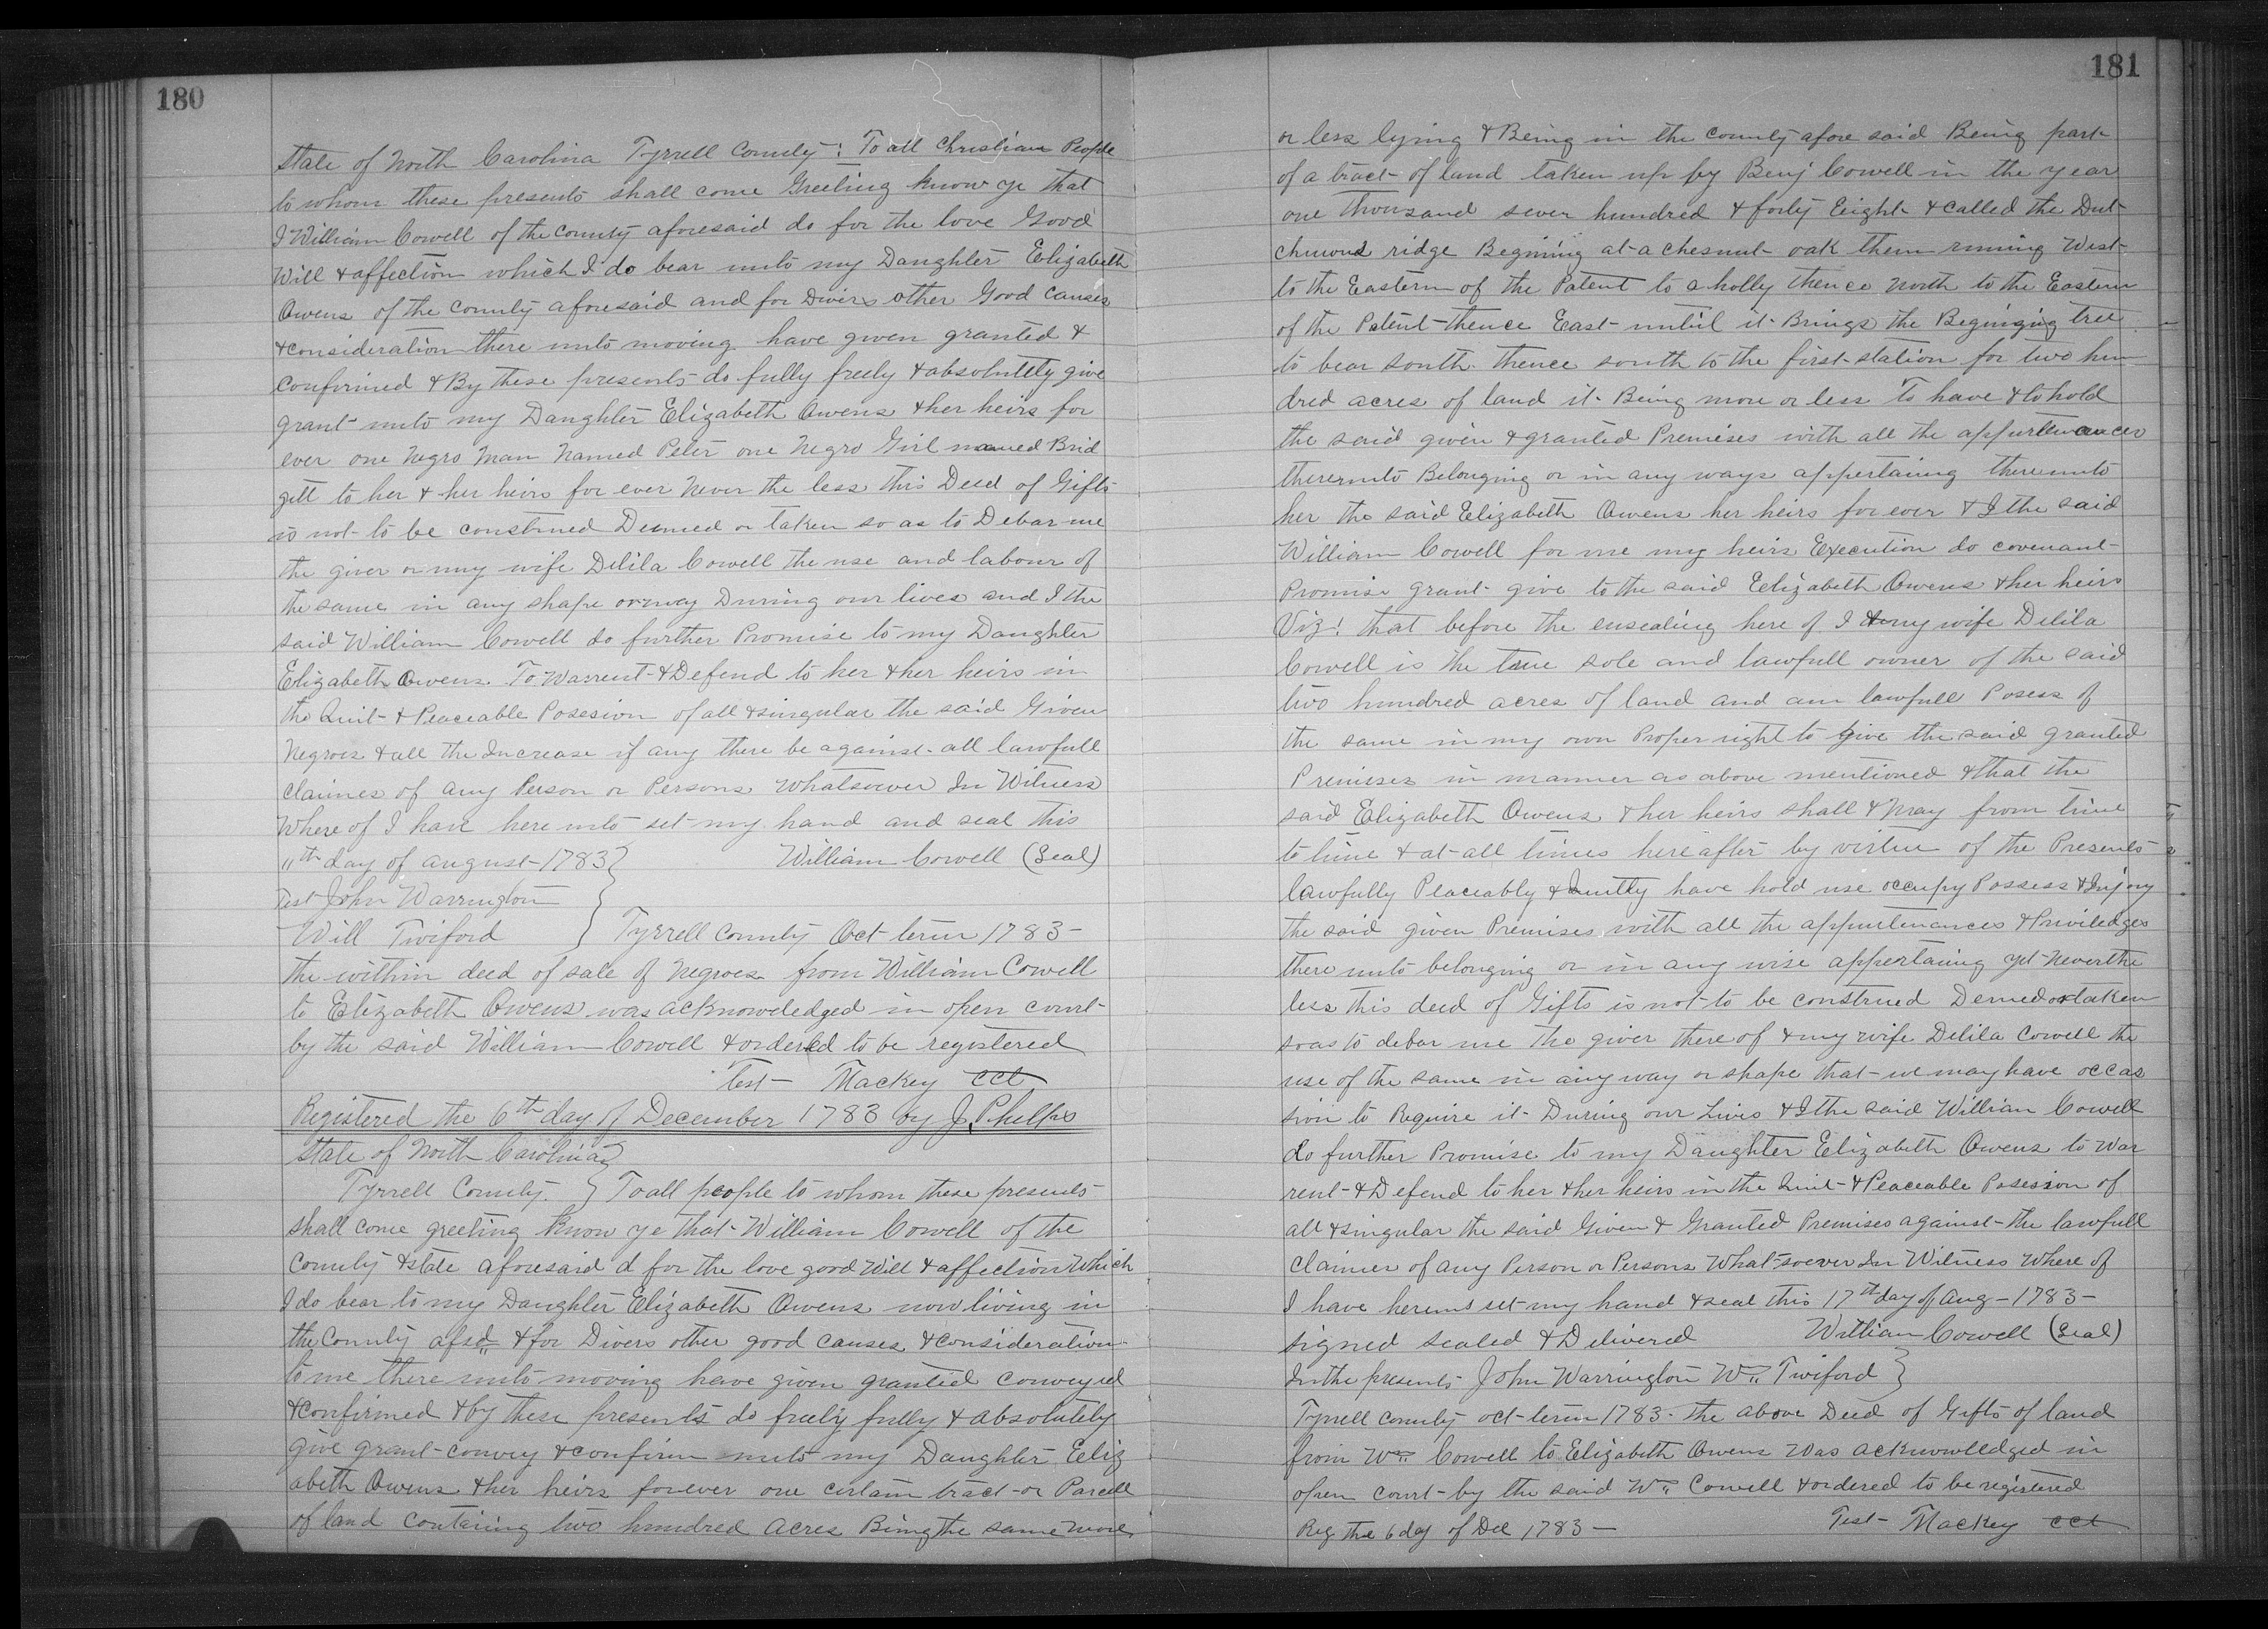 180
State of North Carolina Tyrrell County: To all Christian People
to whom these presents shall come Greeting know ye that
I William Cowell of the County aforesaid do for the love Good
Will & affection which I do bear unto my Daughter Elizabeth
Owens of the County aforesaid and for Divers other Good Causes
& consideration there unto moving have given granted &
confirmed & By these presents do fully freely & absolutely give
grant unto my Daughter Elizabeth Owens & her heirs for
ever one Negro Man Named Peter one Negro Girl named Brid
gett to her & her heirs for ever Never the less this Deed of Gifts
is not to be construed Deemed or taken so as to Debar me
the giver or my wife Delila Cowell the use and labour of
the same in any shape or way During our lives and I the
said William Cowell do further Promise to my Daughter
Elizabeth Owens. To Warrent & Defend to her & her heirs in
the Quit & Peaceable Posesion of all & singular the said Given
Negroes & all the Increase if any there be against all lawfull
claimes of any Person or Persons Whatsoever In Witness
Where of I have here unto set my hand and seal this
11th day of August 1783 } William Cowell (Seal)
Test John Warrington
Will Twiford } Tyrrell County Oct term 1783 -
the within deed of sale of Negroes from William Cowell
to Elizabeth Owens was acknoweledged in open court
by the said William Cowell & ordered to be registered
Test - Mackey CCt
Registered the 6th day of December 1783 by J. Phelps
State of North Carolina }
Tyrrell County. } To all people to whom these presents
shall come greeting know ye that William Cowell of the
County & state aforesaid d for the love good Will & affection Which
I do bear to my Daughter Elizabeth Owens now living in
the County afsd & for Divers other good causes & consideration
to me there unto moving have given granted conveyed
& confirmed & by these presents do freely fully & absolutely
give grant convey & confirm unto my Daughter Eliz
abeth Owens & her heirs forever one certain tract or Parcell
of land containing two hundred Acres Being the same more
181
or less lying & Being in the county afore said Being part
of a tract of land taken up by Benj Cowell in the year
one thousand seven hundred & forty Eight & called the Dut
chwoud ridge Begining at a Chesnut oak them runing West
to the Eastern of the Patent to a holly thence North to the Eastern
of the Patent thence East until it Brings the Begining tree
to bear south thence south to the first station for two hun
dred acres of land it Being more or less To have & to hold
the said given & granted Premises with all the appurtenances
thereunto Belonging or in any ways appertaing thereunto
her the said Elizabeth Owens her heirs forever & I the said
William Cowell for me my heirs Execution do covenant
Promise grant give to the said Elizabeth Owens & her heirs
Viz! that before the ensealing here of I & my wife Delila
Cowell is the true sole and lawfull owner of the said
two hundred acres of land and am lawfull Posess of
the same in my own Proper right to give the said granted
Premises in manner as above mentioned & that the
said Elizabeth Owens & her heirs shall & May from time
to time & at all times here after by virtue of the Presents
lawfully Peaceably & Quitly have hold use occupy Possess & Injoy
the said given Premises with all the appurtenances & Priviledges
there unto belonging or in any wise appertaing yet Neverthe
less this deed of Gifts is not to be construed Demed or taken
so as to debar me the giver there of & my wife Delila Cowell the
use of the same in any way or shape that we may have occas
sion to Require it During our Lives & I the said William Cowell
do further Promise to my Daughter Elizabeth Owens to War
rent & Defend to her & her heirs in the Quit & Peaceable Posession of
all & singular the said Given & Granted Premises against the lawfull
claimes of any Person or Persons What soever In Witness Where of
I have hereunt set my hand & seal this 17th day of Aug - 1783 -
signed sealed & Delivered William Cowell (Seal)
In the presents John Warrington Wm Twiford }
Tyrrell County oct term 1783 - the above Deed of Gifts of land
from Wm Cowell to Elizabeth Owens Was acknowlledged in
open court by the said Wm Cowell & ordered to be registered
Reg the 6 day of Dec 1783 - Test - Mackey CCt